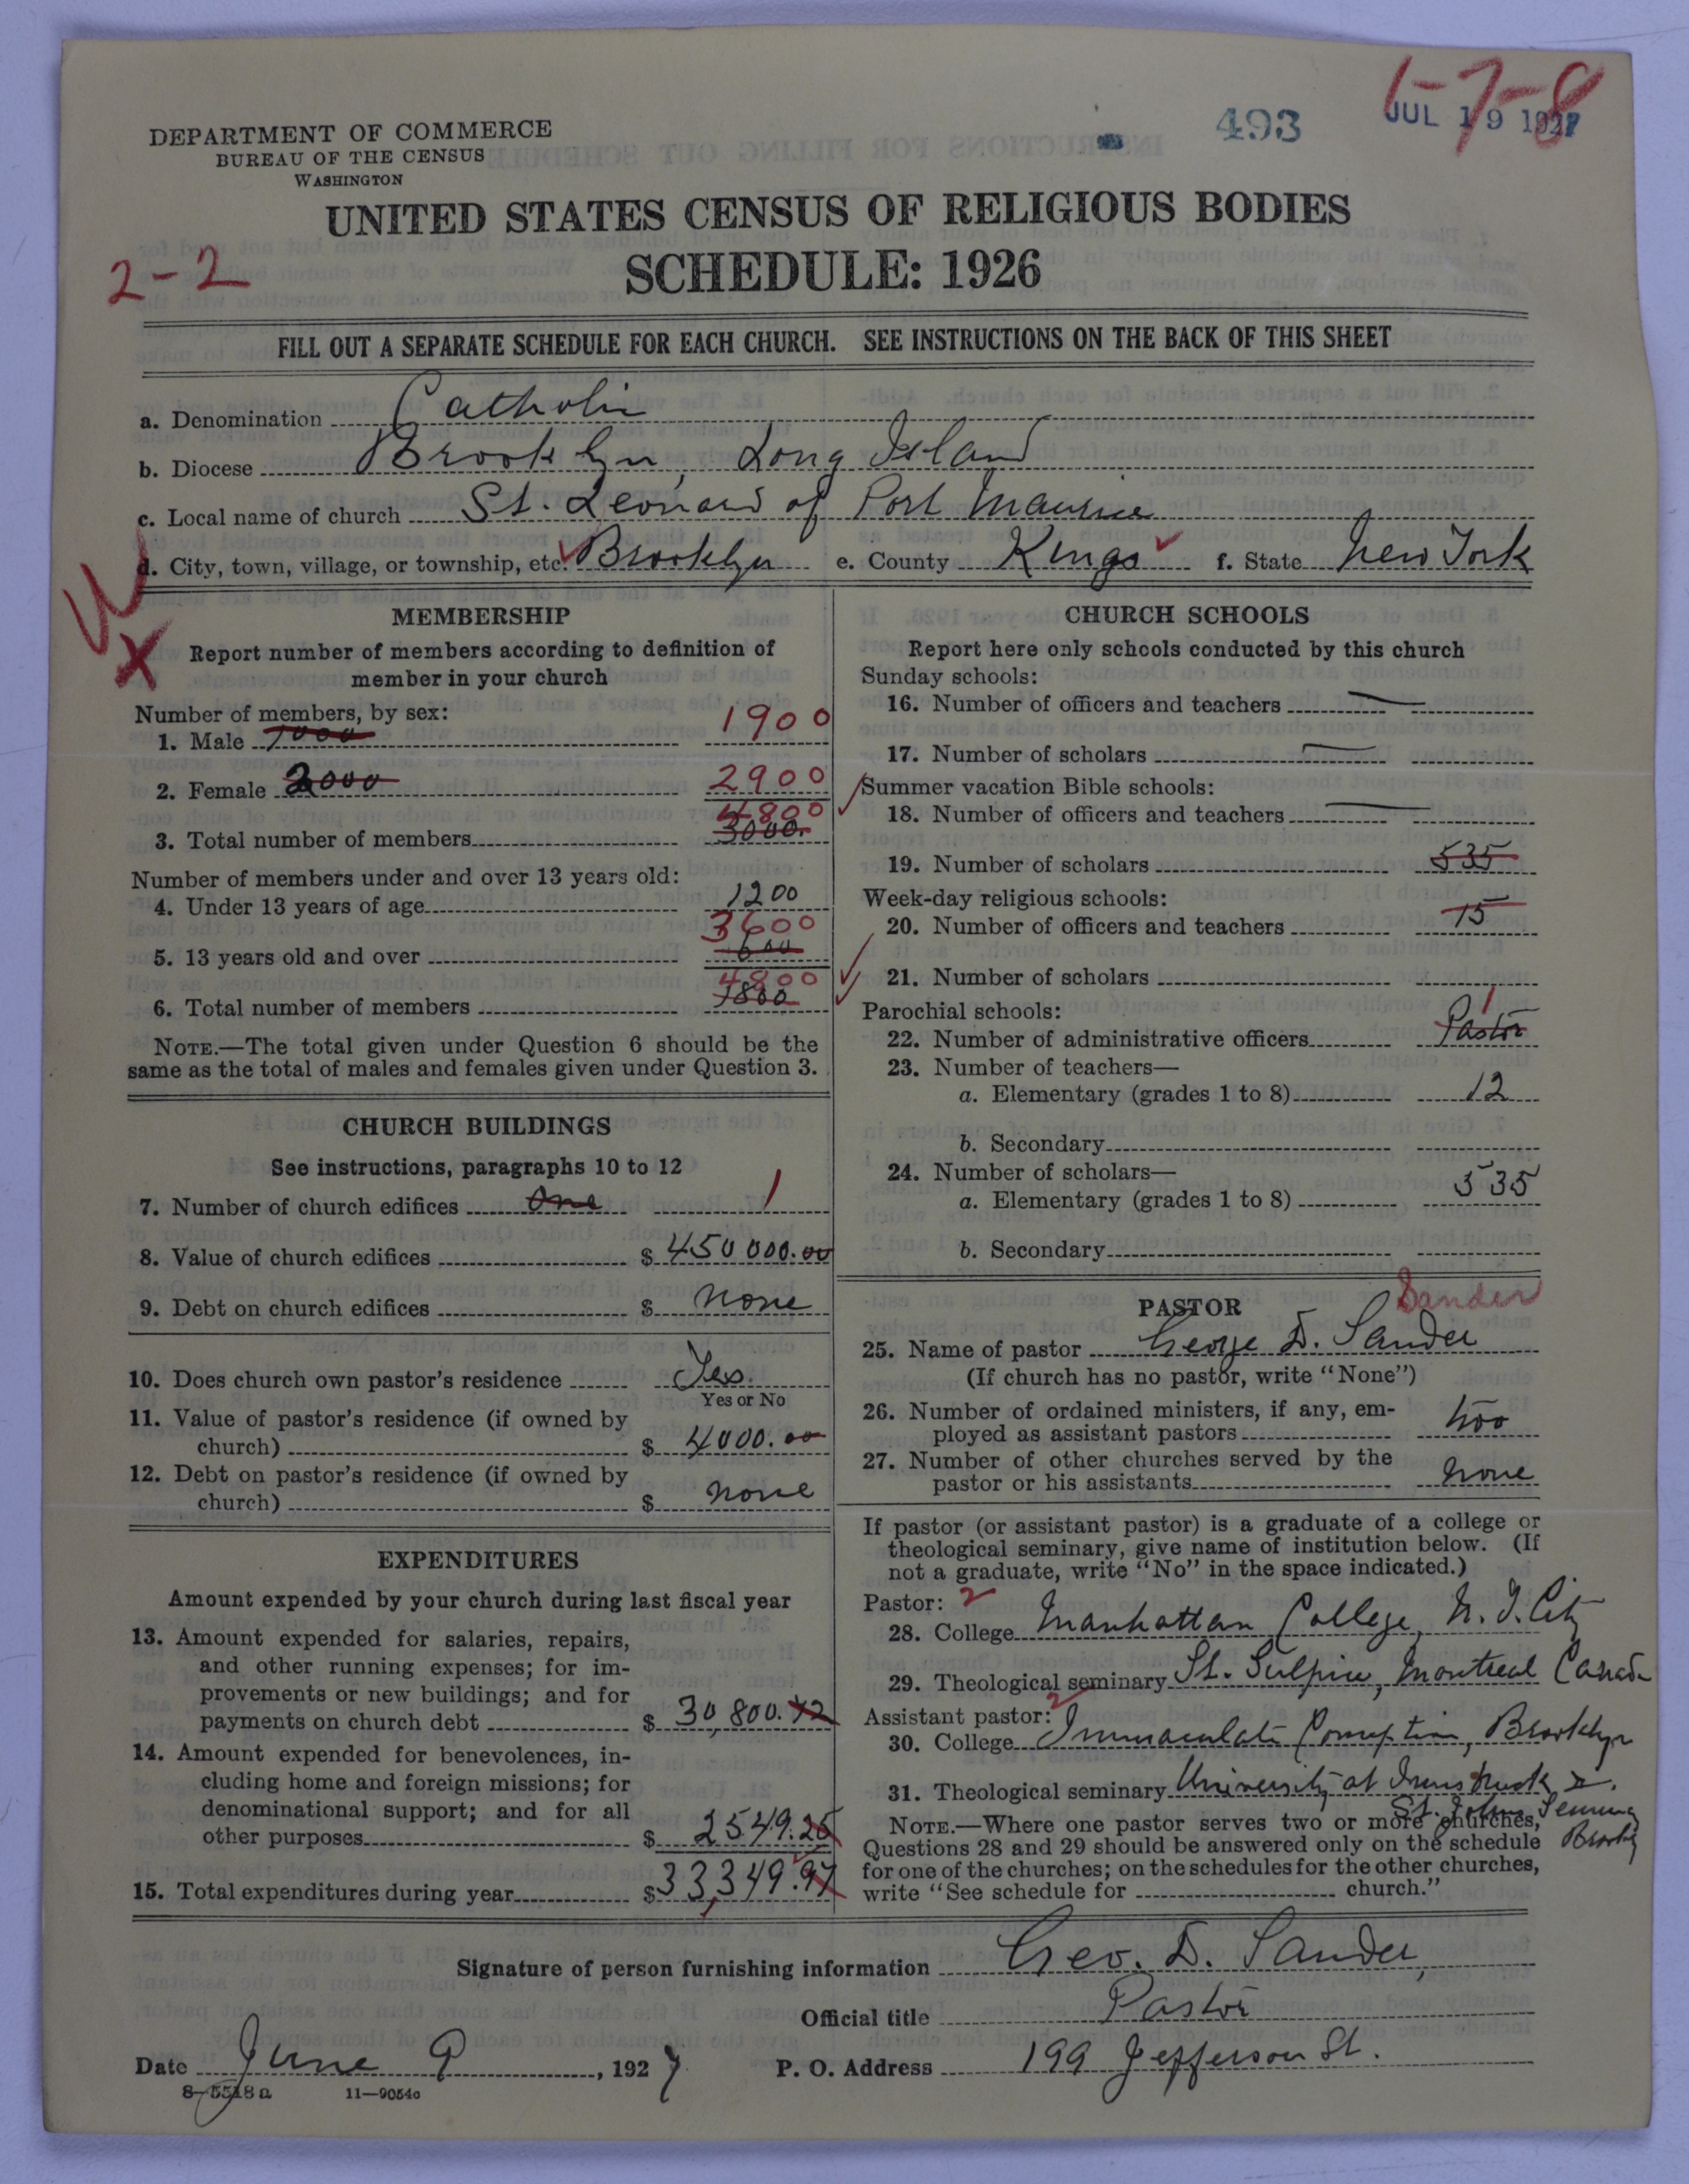 1-7-8
493
JUL 19 1927
DEPARTMENT OF COMMERCE
BUREAU OF THE CENSUS
WASHINGTON
UNITED STATES CENSUS OF RELIGIOUS BODIES
2-2
SCHEDULE: 1926
FILL OUT A SEPARATE SCHEDULE FOR EACH CHURCH. SEE INSTRUCTIONS ON THE BACK OF THIS SHEET
a. Denomination Catholic
b. Diocese Brooklyn, Long Island
c. Local name of church St. Leonard of Port Maurice
d. City, town, village, or township, etc. Brooklyn e. County Kings f. State New York
MEMBERSHIP
Report number of members according to definition of
member in your church
Number of members, by sex:
1. Male 1000 1900
2. Female 2000 2900
4800
3. Total number of members 3000.
Number of members under and over 13 years old:
4. Under 13 years of age 1200
3600
5. 13 years old and over 600
4800
6. Total number of members 1800
NOTE.—The total given under Question 6 should be the
same as the total of males and females given under Question 3.
CHURCH BUILDINGS
See instructions, paragraphs 10 to 12
7. Number of church edifices One 1
8. Value of church edifices $ 450 000.00
9. Debt on church edifices $ none
10. Does church own pastor's residence Yes.
Yes or No
11. Value of pastor's residence (if owned by
church) $ 4000.00
12. Debt on pastor's residence (if owned by
church) $ none
EXPENDITURES
Amount expended by your church during last fiscal year
13. Amount expended for salaries, repairs,
and other running expenses; for im-
provements or new buildings; and for
payments on church debt $ 30,800.72
14. Amount expended for benevolences, in-
cluding home and foreign missions; for
denominational support; and for all
other purposes $ 2549.25
15. Total expenditures during year $ 33,349.97
CHURCH SCHOOLS
Report here only schools conducted by this church
Sunday schools:
16. Number of officers and teachers
17. Number of scholars
Summer vacation Bible schools:
18. Number of officers and teachers
19. Number of scholars 535
Week-day religious schools:
20. Number of officers and teachers 15
21. Number of scholars
Parochial schools:
1
22. Number of administrative officers Pastor
23. Number of teachers—
a. Elementary (grades 1 to 8) 12
b. Secondary
24. Number of scholars—
a. Elementary (grades 1 to 8) 535
b. Secondary
Sander
PASTOR
25. Name of pastor George D. Sander
(If church has no pastor, write "None")
26. Number of ordained ministers, if any, em-
ployed as assistant pastors
27. Number of other churches served by the
pastor or his assistants none
If pastor (or assistant pastor) is a graduate of a college or
theological seminary, give name of institution below. (If
not a graduate, write "No" in the space indicated.)
Pastor: 2
28. College Manhattan College, N. Y. City
29. Theological seminary St. Sulpice, Montreal Canada
Assistant pastor: 2
30. College Immaculate Conception, Brooklyn
31. Theological seminary University at Innsbruck
St. Johns Seminary
NOTE.—Where one pastor serves two or more churches,
Questions 28 and 29 should be answered only on the schedule
for one of the churches; on the schedules for the other churches,
write "See schedule for church."
Signature of person furnishing information Geo. D. Sander,
Official title Pastor
Date June 9, 1927 P. O. Address 199 Jefferson St.
8-5518a 11-9054c